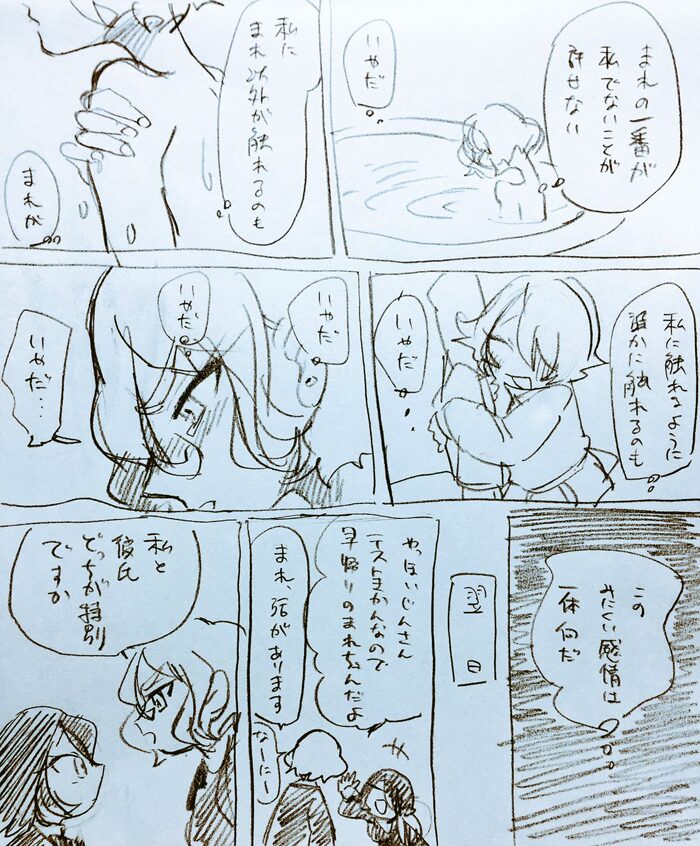 まれの一番が
私でないことが
許せない
いやだ
私に
まれ以外が触れるのも
まれが
私に触れるように
誰かに触れるのも
いやだ
いやだ
いやだ
いやだ…
この
みにくい感情は
一体何だ
翌日
やっほいじんさん
テストきかんなので
早帰りのまれちゃんだよ
まれ、話があります
なーにー
私と
彼氏
どっちが特別
ですか